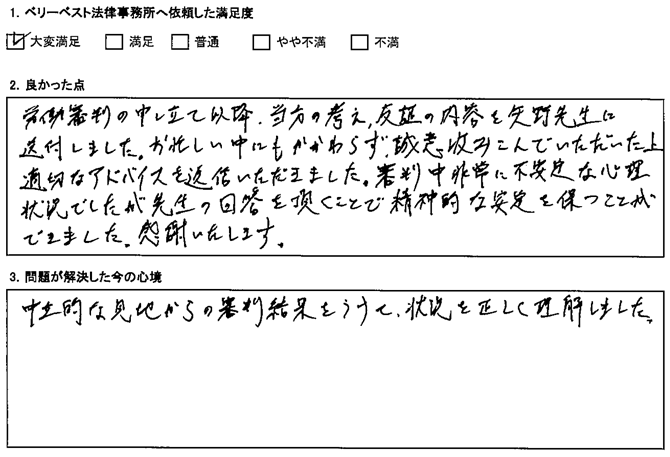 1. ベリーベスト法律事務所へ依頼した満足度
大変満足 満足 普通 やや不満 不満
2. 良かった点
労働審判の申し立て以降、当方の考え、反証の内容を矢野先生に
送付しました。お忙しい中にもかかわらず、誠意汲みこんでいただいた上
適切なアドバイスを返信いただきました。審判中非常に不安定な心理
状況でしたが先生の回答を頂くことで精神的な安定を保つことが
できました。感謝いたします。
3. 問題が解決した今の心境
中立的な見地からの審判結果をうけて、状況を正しく理解しました。